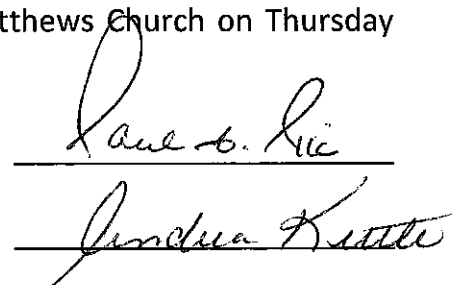 tthews Church on Thursday
Paul
Andrea Kettle